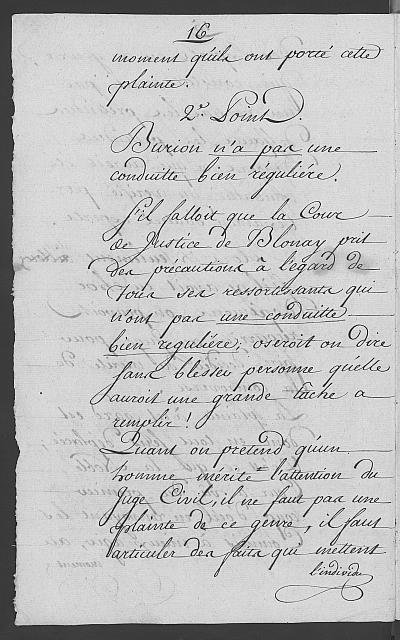 16
moment qu'ils ont porté cette
plainte.
2.e Point.
Burion n'a pas une
conduitte bien régulière.
S'il falloit que la Cour
de Justice de Blonay prit
des précautions à l'égard de
tous ses ressortissants qui
n'ont pas une conduitte
bien regulière; oseroit on dire
sans blesser personne qu'elle
auroit une grande tâche a
remplir!
Quant on pretend qu'un
homme mérite l'attention du
Juge Civil, il ne faut pas une
plainte de ce genre, il faut
articuler des faits qui mettent
l'individu